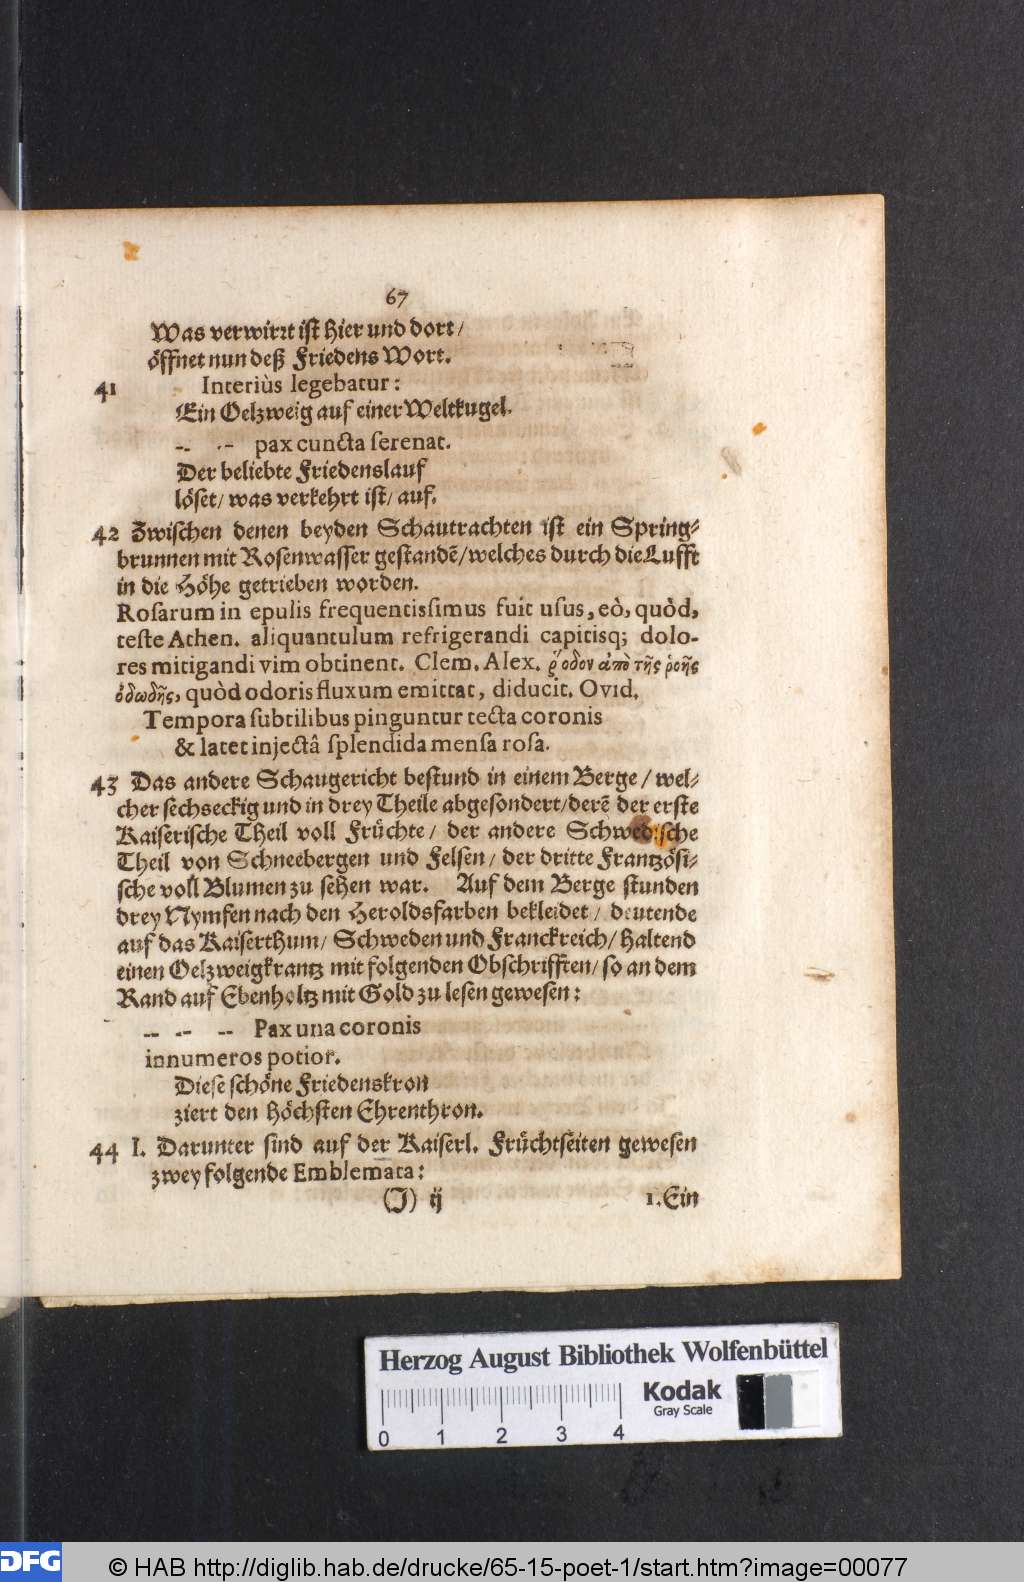 67
Was verwirꝛt ist hier und dort /
öffnet nun deß Friedens Wort.
41 Interiùs legebatur:
Ein Oelzweig auf einer Weltkugel.
-- -- pax cuncta serenat.
Der beliebte Friedenslauf
löset / was verkehrt ist / auf.
42 Zwischen denen beyden Schautrachten ist ein Spring-
brunnen mit Rosenwasser gestandē / welches durch die Lufft
in die Höhe getrieben worden.
Rosarum in epulis frequentissimus fuit usus, eò, quòd,
teste Athen. aliquantulum refrigerandi capitisq; dolo-
res mitigandi vim obtinent. Clem. Alex. ῥόδον ἀπὸ τῆς ῥοῆς
ὀδωδῆς, quòd odoris fluxum emittat, diducit. Ovid.
Tempora subtilibus pinguntur tecta coronis
& latet injectâ splendida mensa rosa.
43 Das andere Schaugericht bestund in einem Berge / wel-
cher sechseckig und in drey Theile abgesondert / derē der erste
Kaiserische Theil voll Früchte / der andere Schwedische
Theil von Schneebergen und Felsen / der dritte Frantzösi-
sche voll Blumen zu sehen war. Auf dem Berge stunden
drey Nymfen nach den Heroldsfarben bekleidet / deutende
auf das Kaiserthum / Schweden und Franckreich / haltend
einen Oelzweigkrantz mit folgenden Obschrifften / so an dem
Rand auf Ebenholtz mit Gold zu lesen gewesen:
-- -- -- Pax una coronis
innumeros potior.
Diese schöne Friedenskron
ziert den höchsten Ehrenthron.
44 I. Darunter sind auf der Kaiserl. Früchtseiten gewesen
zwey folgende Emblemata:
(J) ij 1. Ein
Herzog August Bibliothek Wolfenbüttel
Kodak
Gray Scale
0 1 2 3 4
DFG © HAB http://diglib.hab.de/drucke/65-15-poet-1/start.htm?image=00077